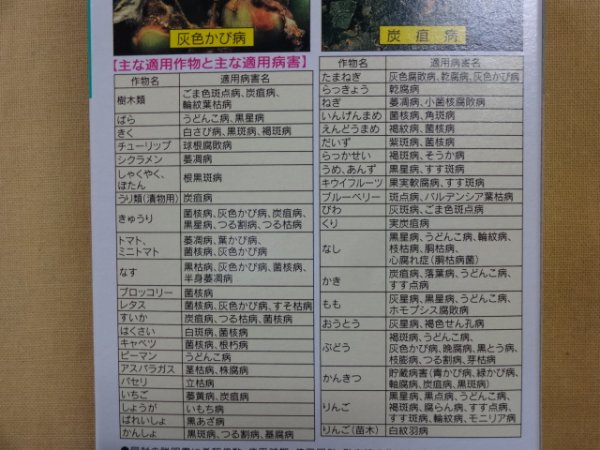 灰色かび病
炭疽病
【主な適用作物と主な適用病害】
作物名 適用病害名
樹木類 ごま色斑点病、炭疽病、
輪紋葉枯病
ばら うどんこ病、黒星病
きく 白さび病、黒斑病、褐斑病
チューリップ 球根腐敗病
シクラメン 萎凋病
しゃくやく、
ぼたん 根黒斑病
うり類(漬物用) 炭疽病
きゅうり 菌核病、灰色かび病、炭疽病、
黒星病、つる割病、つる枯病
トマト、
ミニトマト 萎凋病、葉かび病、
菌核病、灰色かび病
なす 黒枯病、灰色かび病、菌核病、
半身萎凋病
ブロッコリー 菌核病
レタス 菌核病、灰色かび病、すそ枯病
すいか 炭疽病、つる枯病、菌核病
はくさい 白斑病、菌核病
キャベツ 菌核病、根朽病
ピーマン うどんこ病
アスパラガス 茎枯病、株腐病
パセリ 立枯病
いちご 萎黄病、炭疽病
しょうが いもち病
ばれいしょ 黒あざ病
かんしょ 黒斑病、つる割病、基腐病
作物名 適用病害名
たまねぎ 灰色腐敗病、乾腐病、灰色かび病
らっきょう 乾腐病
ねぎ 萎凋病、小菌核腐敗病
いんげんまめ 菌核病、角斑病
えんどうまめ 褐紋病、菌核病
だいず 紫斑病、菌核病
らっかせい 褐斑病、そうか病
うめ、あんず 黒星病、すす斑病
キウイフルーツ 果実軟腐病、すす斑病
ブルーベリー 斑点病、バルデンシア葉枯病
びわ 灰斑病、ごま色斑点病
くり 実炭疽病
なし 黒星病、うどんこ病、輪紋病、
枝枯病、胴枯病、
心腐れ症(胴枯病菌)
かき 炭疽病、落葉病、うどんこ病、
すす点病
もも 灰星病、黒星病、うどんこ病、
ホモプシス腐敗病
おうとう 灰星病、褐色せん孔病
ぶどう 褐斑病、うどんこ病、
灰色かび病、晩腐病、黒とう病、
枝膨病、つる割病、芽枯病
かんきつ 貯蔵病害(青かび病、緑かび病、
軸腐病、炭疽病、黒斑病)
りんご 黒星病、黒点病、うどんこ病、
褐斑病、腐らん病、すす点病、
すす斑病、輪紋病、モニリア病
りんご(苗木) 白紋羽病